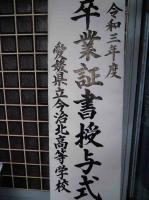 令和三年度
卒業証書授与式
愛媛県立今治北高等学校